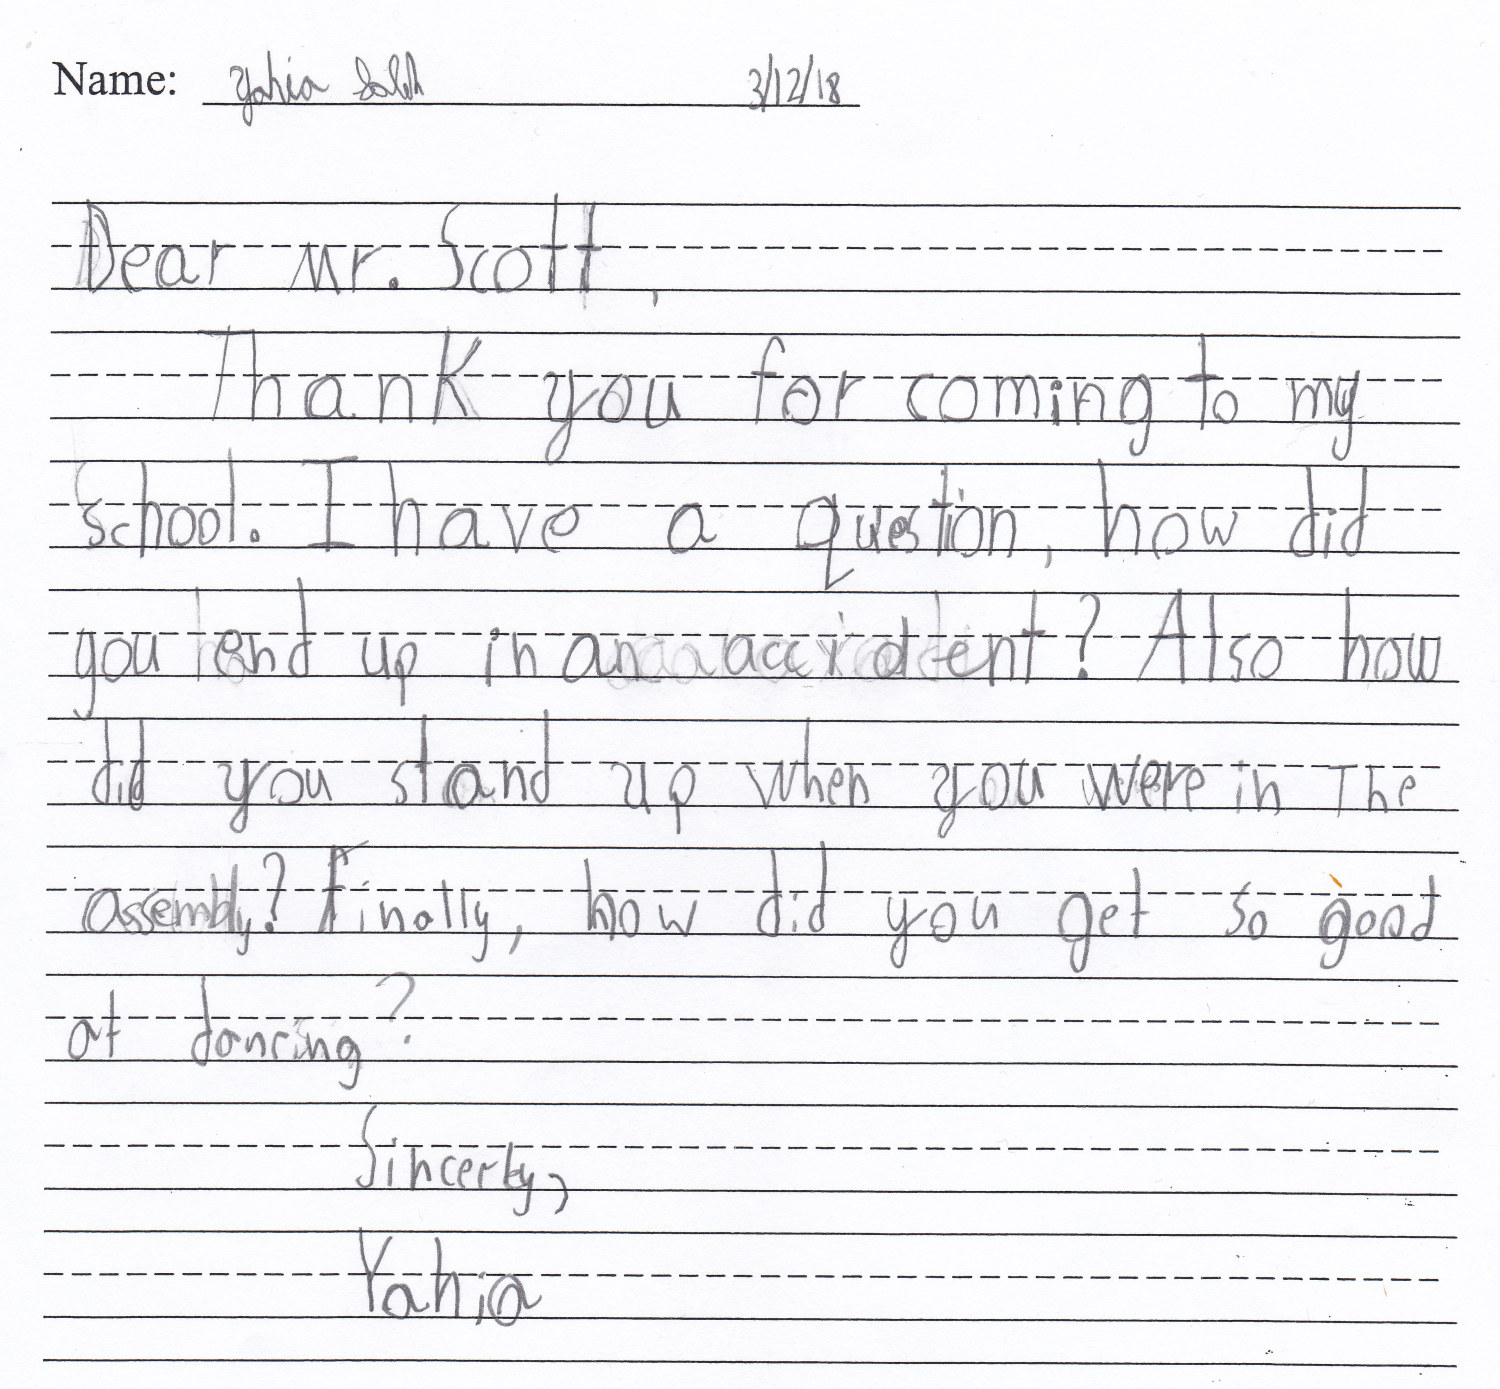 Name: Yahia Saleh 3/12/18
Dear Mr. Scott,
Thank you for coming to my
school. I have a question, how did
you end up in an accident? Also how
did you stand up when you were in The
assembly? Finally, how did you get so good
at dancing?
Sincerly,
Yahia